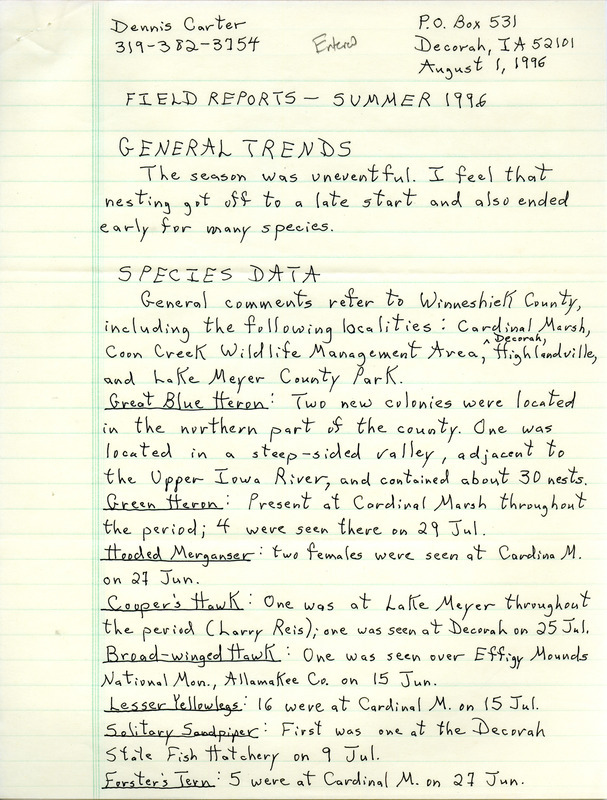 Dennis Carter
319-382-3754
Entered
P.O. Box 531
Decorah, IA 52101
August 1, 1996
FIELD REPORTS — SUMMER 1996
GENERAL TRENDS
The season was uneventful. I feel that
nesting got off to a late start and also ended
early for many species.
SPECIES DATA
General comments refer to Winneshiek County,
including the following localities: Cardinal Marsh,
Coon Creek Wildlife Management Area, ^Decorah, Highlandville,
and Lake Meyer County Park.
Great Blue Heron: Two new colonies were located
in the northern part of the county. One was
located in a steep-sided valley, adjacent to
the Upper Iowa River, and contained about 30 nests.
Green Heron: Present at Cardinal Marsh throughout
the period; 4 were seen there on 29 Jul.
Hooded Merganser: two females were seen at Cardina M.
on 27 Jun.
Cooper's Hawk: One was at Lake Meyer throughout
the period (Larry Reis); one was seen at Decorah on 25 Jul.
Broad-winged Hawk: One was seen over Effigy Mounds
National Mon., Allamakee Co. on 15 Jun.
Lesser Yellowlegs: 16 were at Cardinal M. on 15 Jul.
Solitary Sandpiper: First was one at the Decorah
State Fish Hatchery on 9 Jul.
Forster's Tern: 5 were at Cardinal M. on 27 Jun.